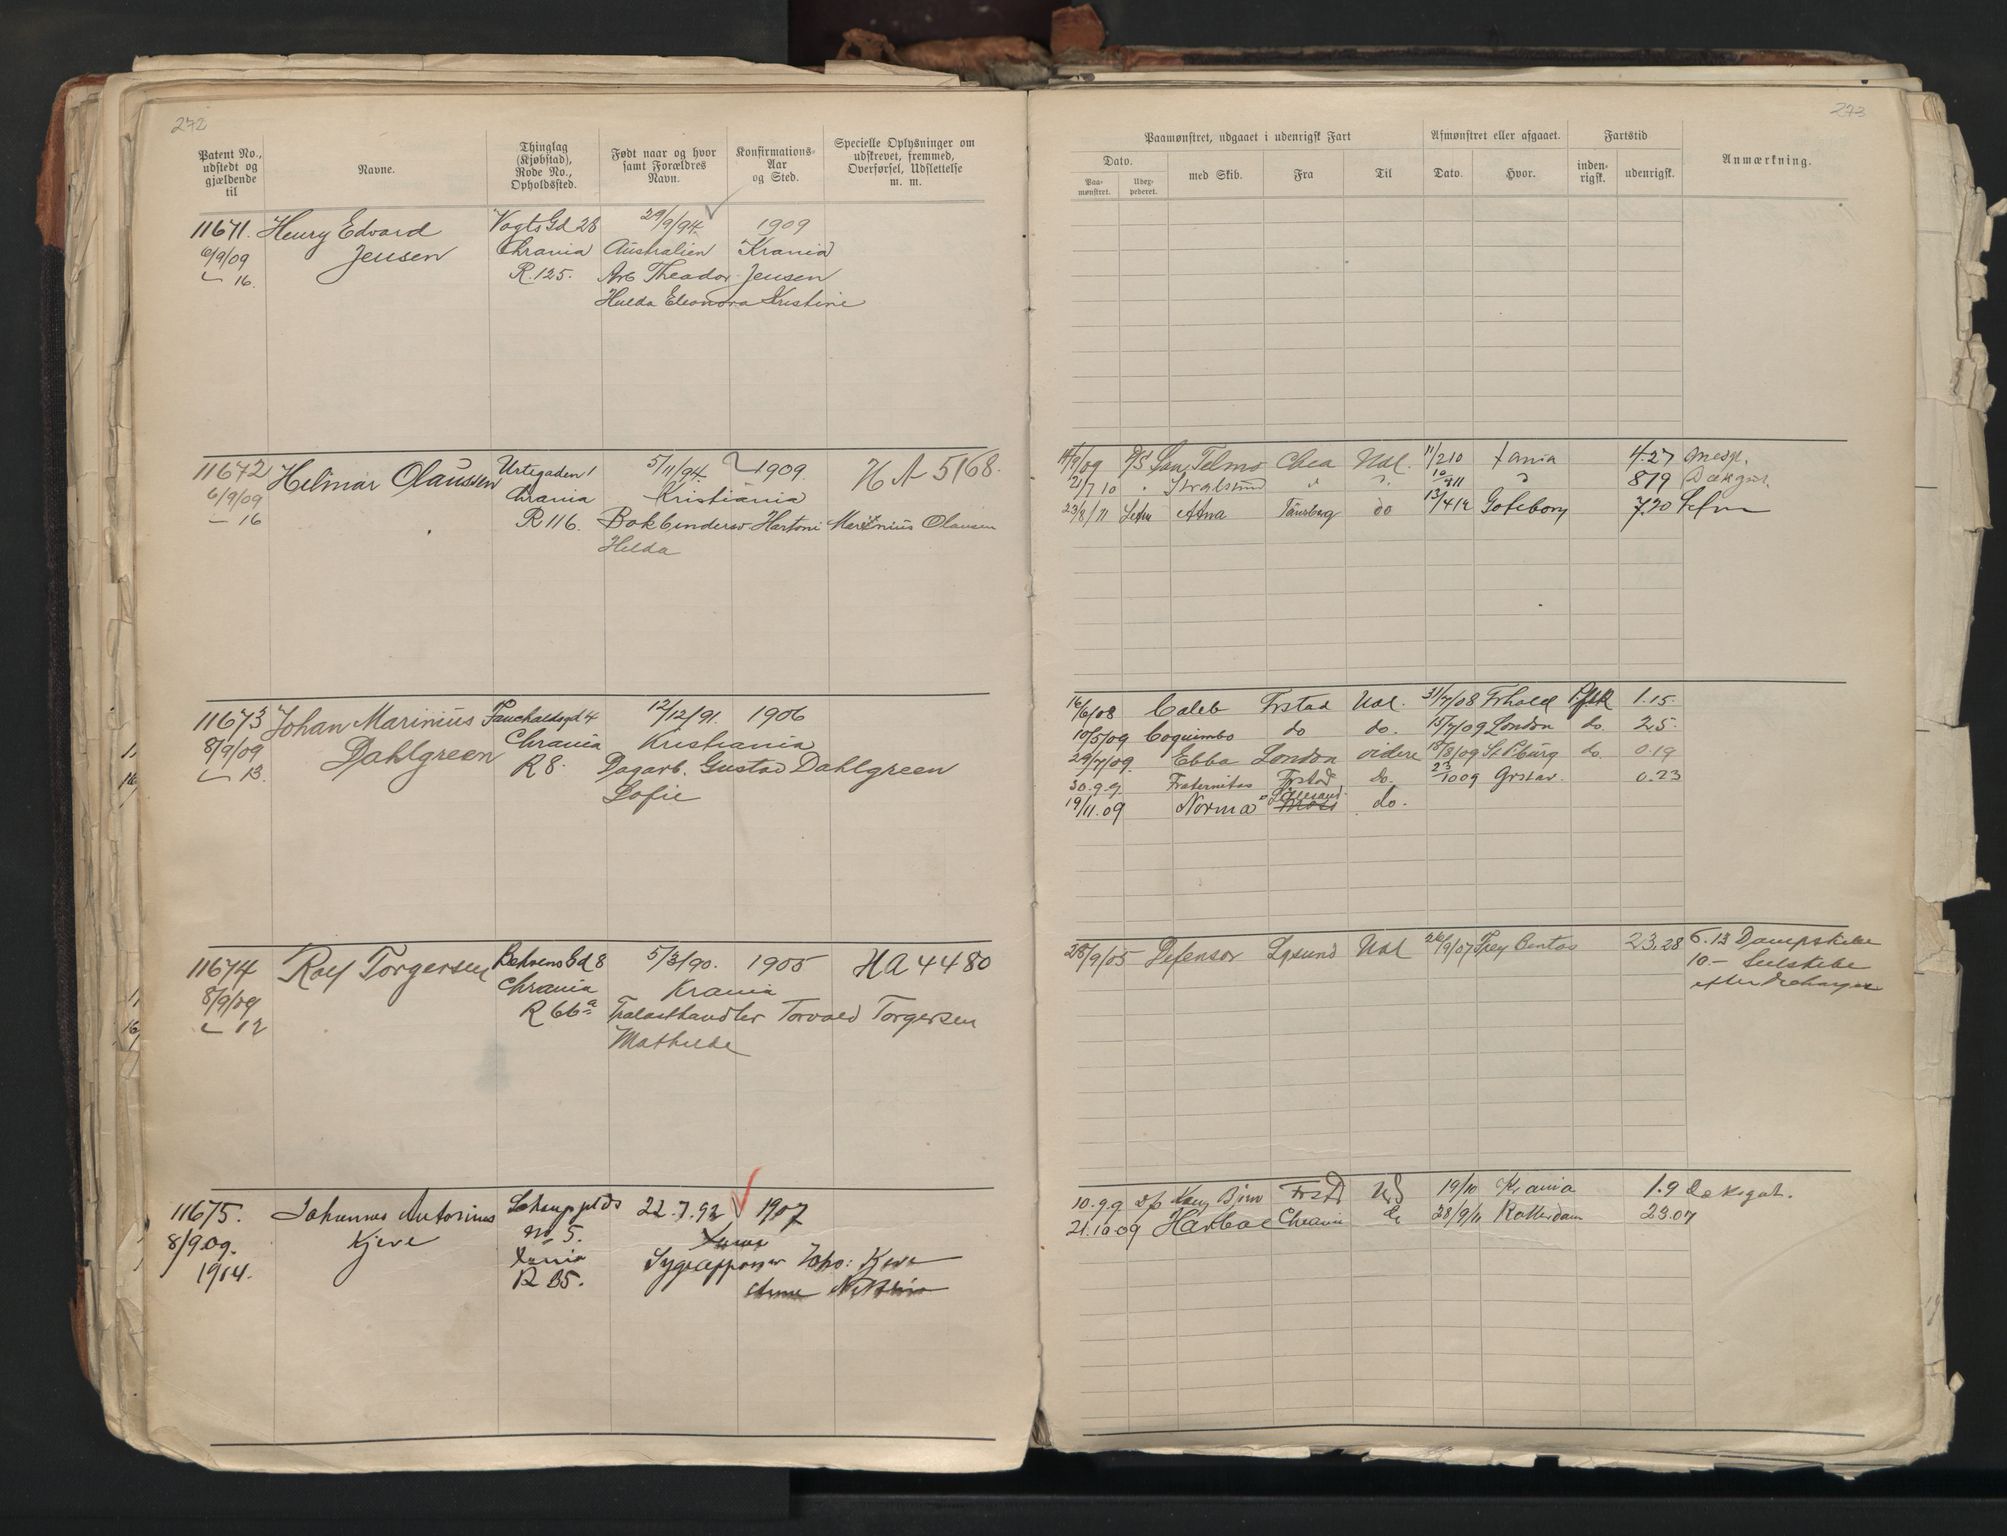 272
Patent No., udstedt og gjældende til
Navne.
Thinglag (Kjøbstad), Rode No., Opholdssted.
Født naar og hvor samt Forældres Navn.
Konfirmations-Aar og Sted.
Specielle Oplysninger om udskrevet, fremmed, Overførsel, Udslettelse m. m.
11671. Henry Edvard Vogts Gd 28 29/9/94 1909
6/9/09 Jensen Chrania Australien Krania
16. R. 125. Arb Theador Jensen
Hulda Eleonora Kristine
11672 Helmar Olaussen Urtegaden 1 5/11/94 1909. H A 5168.
6/9/09 Chrania Kristiania
16 R 116. Bokbindersv Hartoni Marinius Olausen
Helda
11673 Johan Marinius Fauchaldsgd 4 12/12/91. 1906
8/9/09 Dahlgreen Chrania Kristiania
13. R 8. Dagarb. Gustav Dahlgreen
Sofie
11674 Rolf Torgersen Behrens Gd 8 5/3/90. 1905 HA 4480
8/9/09 Chrania Krania
12 R 66a Trælasthandler Torvald Torgersen
Mathilde
11675. Johannes Antonius Schouppl ds 22.7.92 1907
8/9 09. Kjeve No 5. Xania
1914. Xania Kjeve
R B5. Anne
273
Paamønstret, udgaaet i udenrigsk Fart
Afmønstret eller afgaaet.
Fartstid
Anmærkning.
Dato.
Paa-mønstret.
med Skib.
Fra
Til
Dato.
Hvor.
inden-rigsk.
udenrigsk.
14/9/09 D/S San Telmo Chra Udl. 11/2 10 Xania 4.27
21/7 10 " Stralsund " " 10/4 11 " 819
23/8/11 Ætna Tønsberg do 13/4 12 Goteborg 7.20
16/6/08 Caleb Frstad Udl. 31/7/08 Frhald 1.15.
10/5/09 Coquimbo do do. 15/7/09 London do. 2.5.
29/7/09. Ebba London videre 18/8/09 St. P.burg do. 0.19
30.9.9 Fraternitas Frstad do. 23/10 09 Grstav. 0.23
19/11.09 Norma Lillesand Moss do.
28/9/05 Defensor Udl 26/9/07 Frey Bentos 23.28 6.13 Dampskibe
10 - Seilskibe
efter Decharger
10.9.9 D/S Kong Bjørn Frstd Udl 19/10 Krania 1.9 Daksgut.
21.10 09 Harboe Chrania do 28/9/11 Rotterdam 23.07